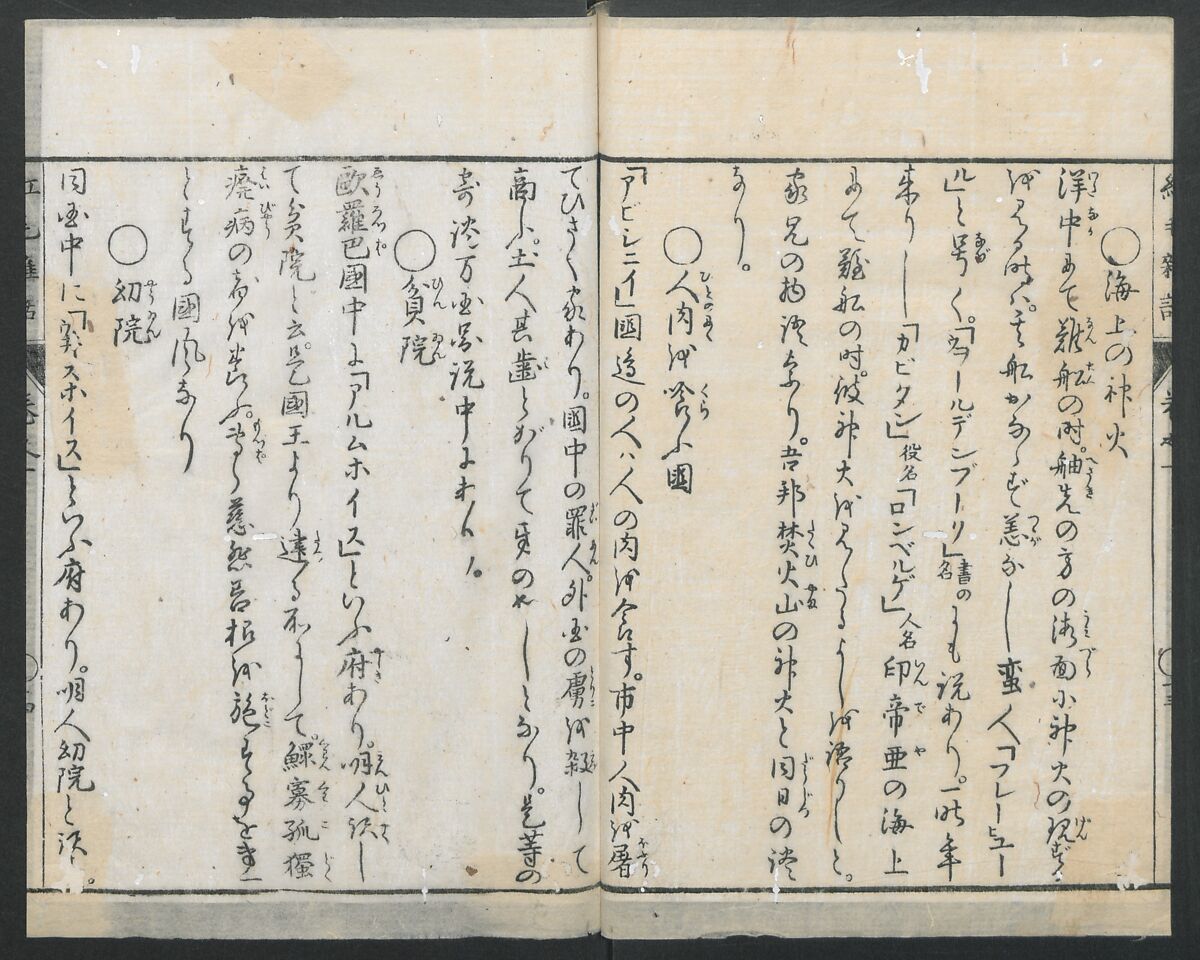 紅毛雜話
○海上の神火
洋中にて難船の時。舳先の方の海面に神火の現ずる
を見る時ハ。其船かならず恙なし蛮人「フレーヒュー
ル」と号く。「ウヲールデンブーク」書の名にも説あり。一昨年
来りし「カビタン」役名「ロンベルゲ」人名印帝亜の海上
にて難船の時。彼神火を見たるよしを語りしと。
家兄の物語なり。吾邦焚火山の神火と同日の談
なり。
○人肉を喰ふ國
「アビシニイ」國邉の人ハ人の肉を食す。市中人肉を屠
てひさぐ家あり。國中の罪人。外国の虜を殺して
商ふ。土人甚歯とがりて牙のやしとなり。是等の
奇談万国圖説中にあり。
○貧院
歐羅巴國中に「アルムホイス」といふ府あり。明人訳し
て貧院と云。是國王より建る所にして。鰥寡孤獨
癈病の者を養ふ。専ら慈悲善根を施するを第一
とする國風なり
○幼院
同国中に「ウェースホイス」といふ府あり。明人幼院と訳す。
紅毛雜話